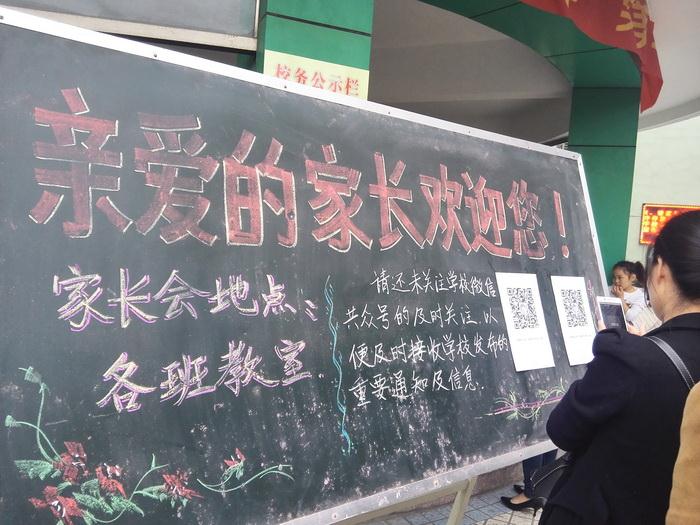 校务公示栏
亲爱的家长欢迎您！
家长会地点：
各班教室.
请还未关注学校微信
共众号的及时关注.以
便及时接收学校发布的
重要通知及信息.